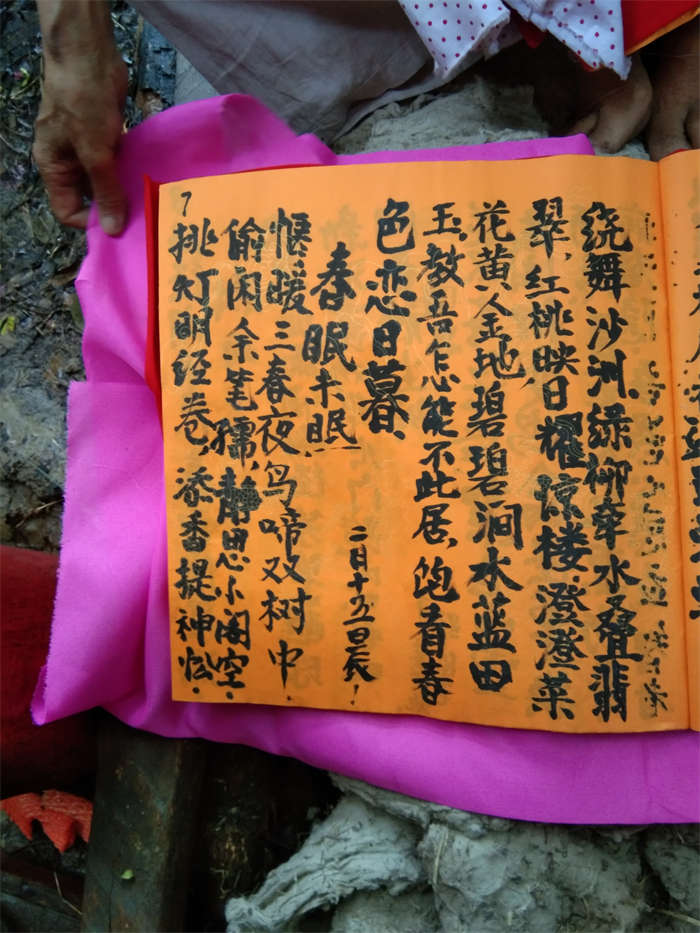 绕舞沙洲、绿柳牵水叠翡
翠、红桃映日耀惊楼、澄澄菜
花黄金地、碧碧涧水蓝田
玉、教吾怎能不此居、饱看春
色恋日暮、
春眠未眠
二月十五日辰!
惬暖三春夜鸟啼双树中、
偷闲余笔孺、静思小阁空、
挑灯明经卷、添香提神怂、
7